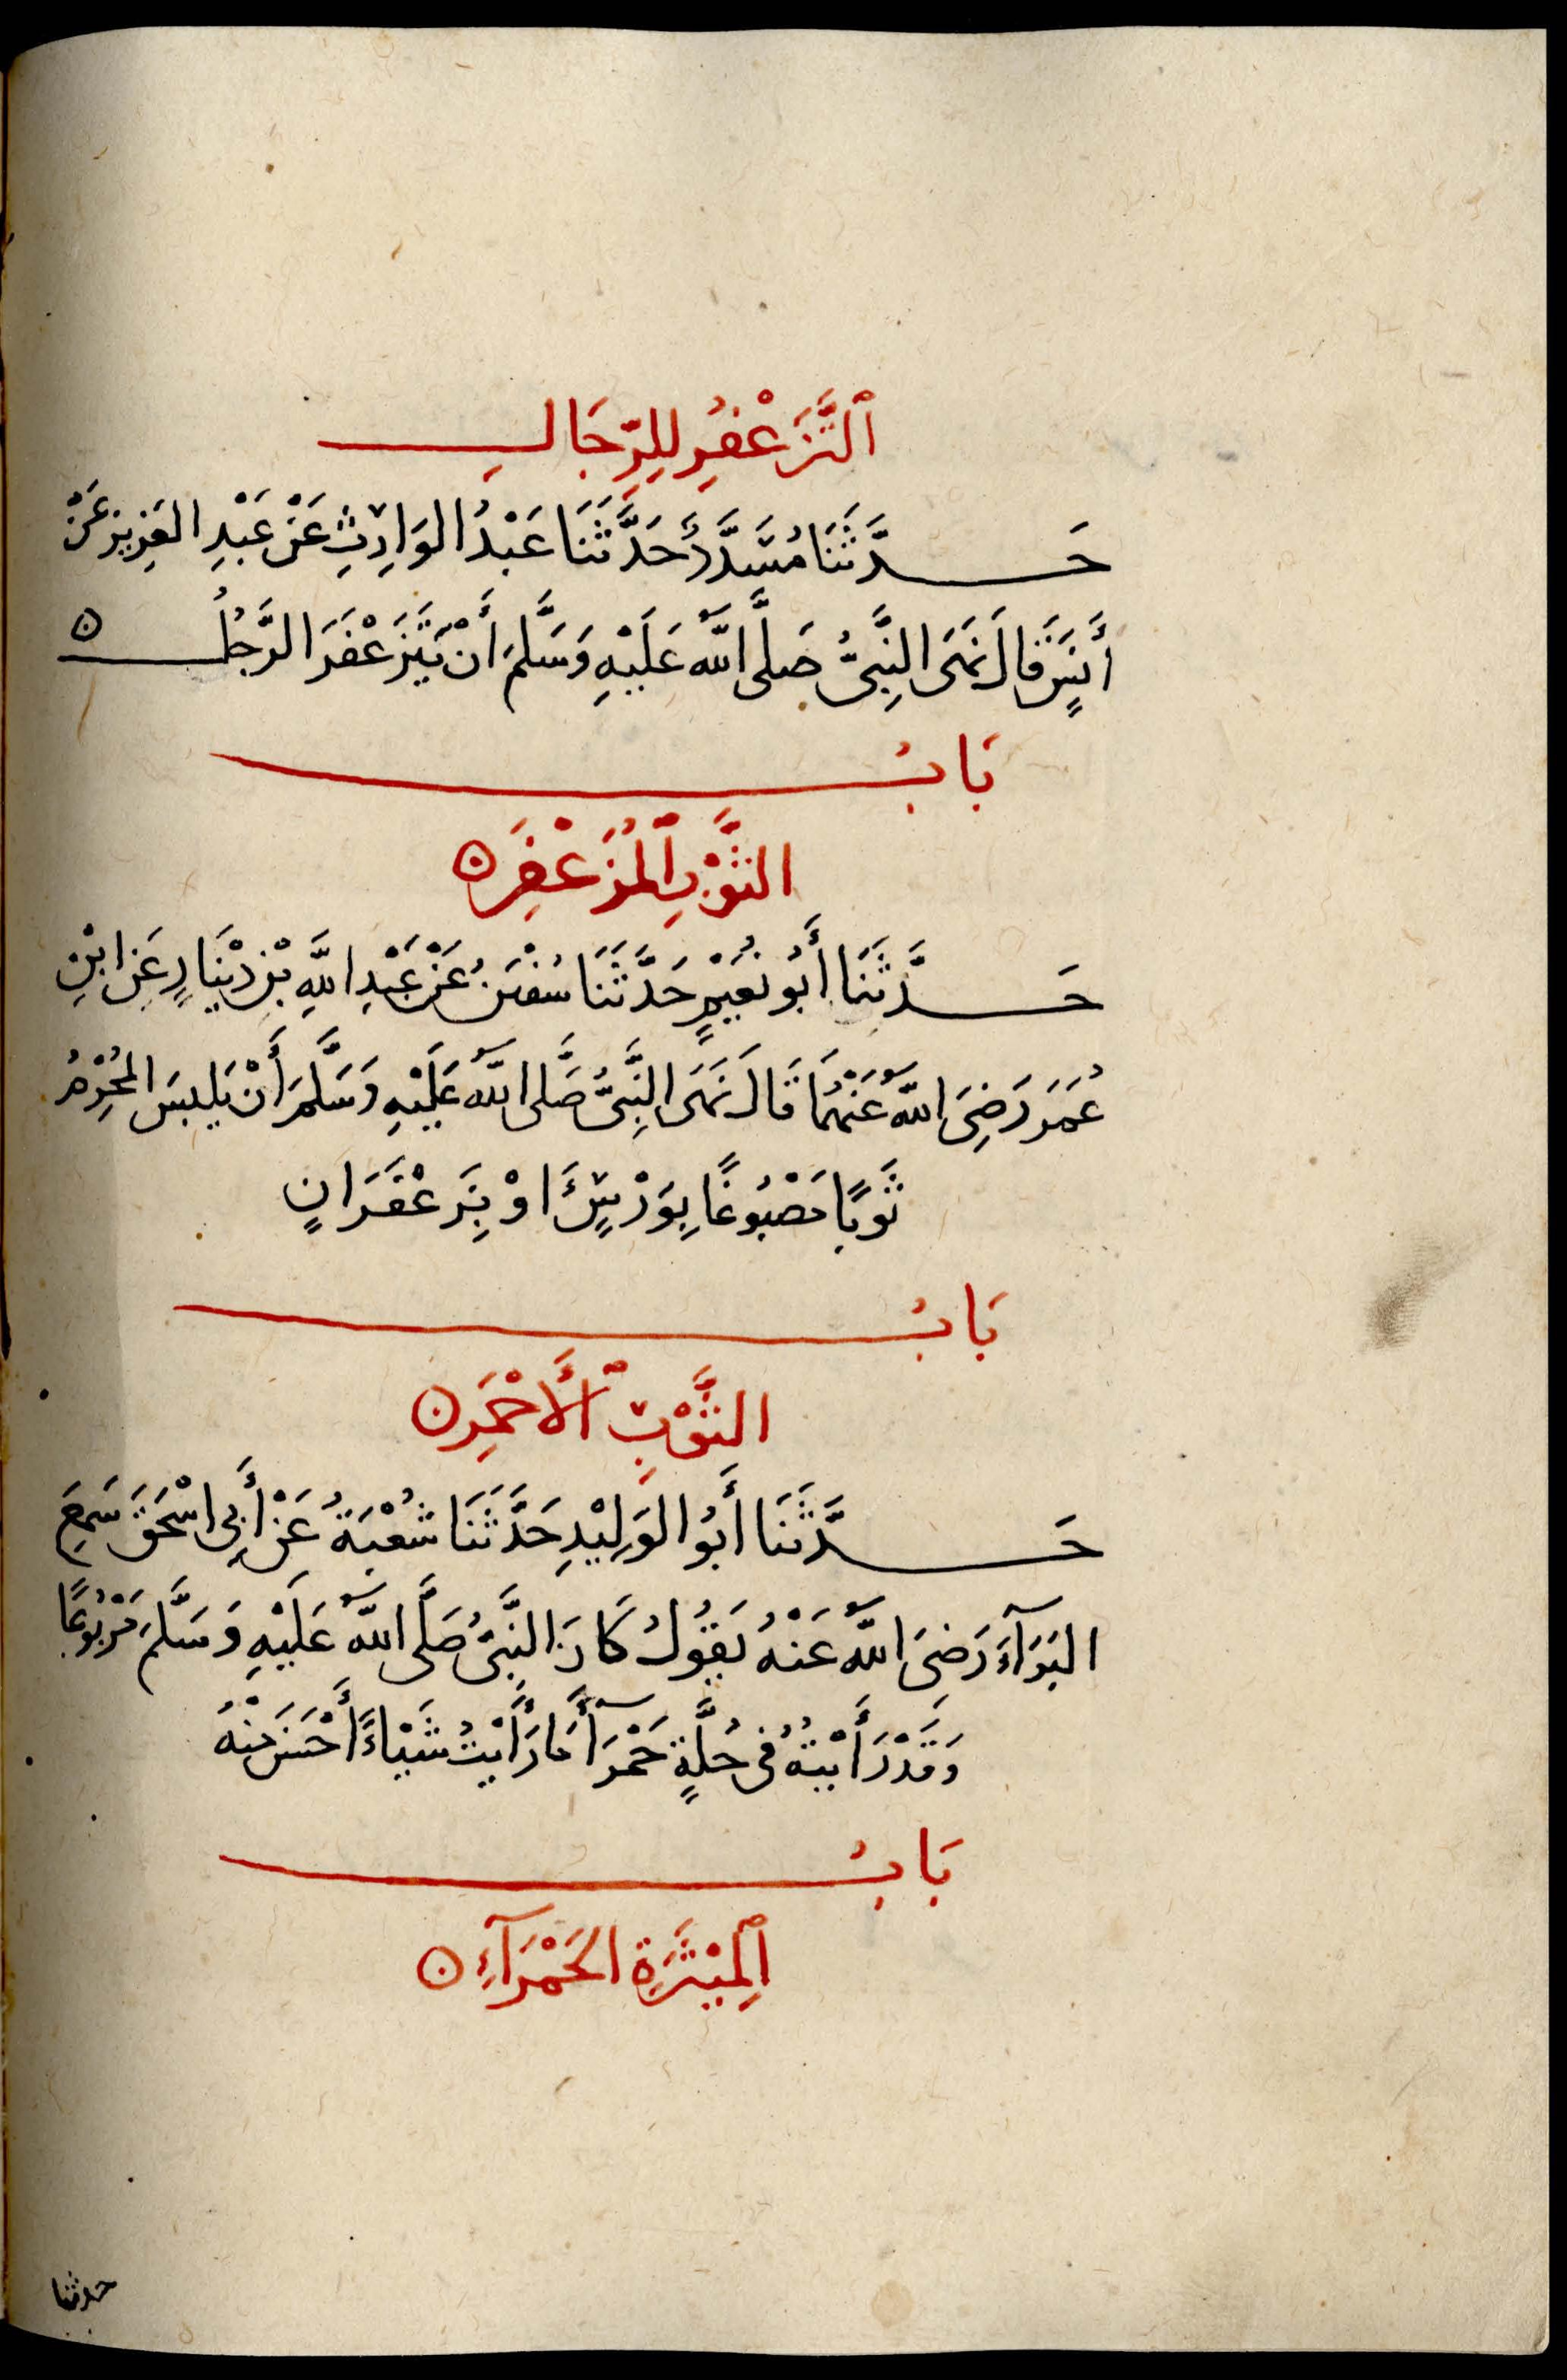 ٱلتَّزَعْفُرِ لِلرِّجَالِ
حَدَّثَنَا مُسَدَّدٌ حَدَّثَنَا عَبْدُ الوَارِثِ عَنْ عَبْدِ العَزِيزِ عَنْ
أَنَسٍ قَالَ نَهَى النَّبِيُّ صَلَّى اللَّهُ عَلَيْهِ وَسَلَّمَ أَنْ يَتَزَعْفَرَ الرَّجُلُ ۵
بَابُ
الثَّوْبِ ٱلْمُزَعْفَرِ ۵
حَدَّثَنَا أَبُو نُعَيْمٍ حَدَّثَنَا سُفْيَنُ عَنْ عَبْدِ اللَّهِ بْنِ دِيْنَارٍ عَنِ ابْنِ
عُمَرَ رَضِيَ اللَّهُ عَنْهُمَا قَالَ نَهَى النَّبِيُّ صَلَّى اللَّهُ عَلَيْهِ وَسَلَّمَ أَنْ يَلْبَسَ المُحْرِمُ
ثَوبًا مَصْبُوغًا بِوَرْسٍ اوْ بِزَعْفَرَانٍ
بَابُ
الثَّوْبِ ٱلْأَحْمَرِ ۵
حَدَّثَنَا أَبُو الوَلِيْدِ حَدَّثَنَا شُعْبَةُ عَنْ أَبِي اسْحَقَ سَمِعَ
البَرَآءَ رَضِيَ اللَّهُ عَنْهُ يَقُولُ كَانَ النَّبِيُّ صَلَّى اللَّهُ عَلَيْهِ وَسَلَّمَ مَرْبُوعًا
وَقَدْ رَأَيْتُهُ فِي حُلَّةٍ حَمْرَآ مَا رَأَيْتُ شَيْاءً أَحْسَنَ مِنْهُ
بَابُ
ٱلْمِيْثَرَةِ الحَمْرَآءِ ۵
حدثنا